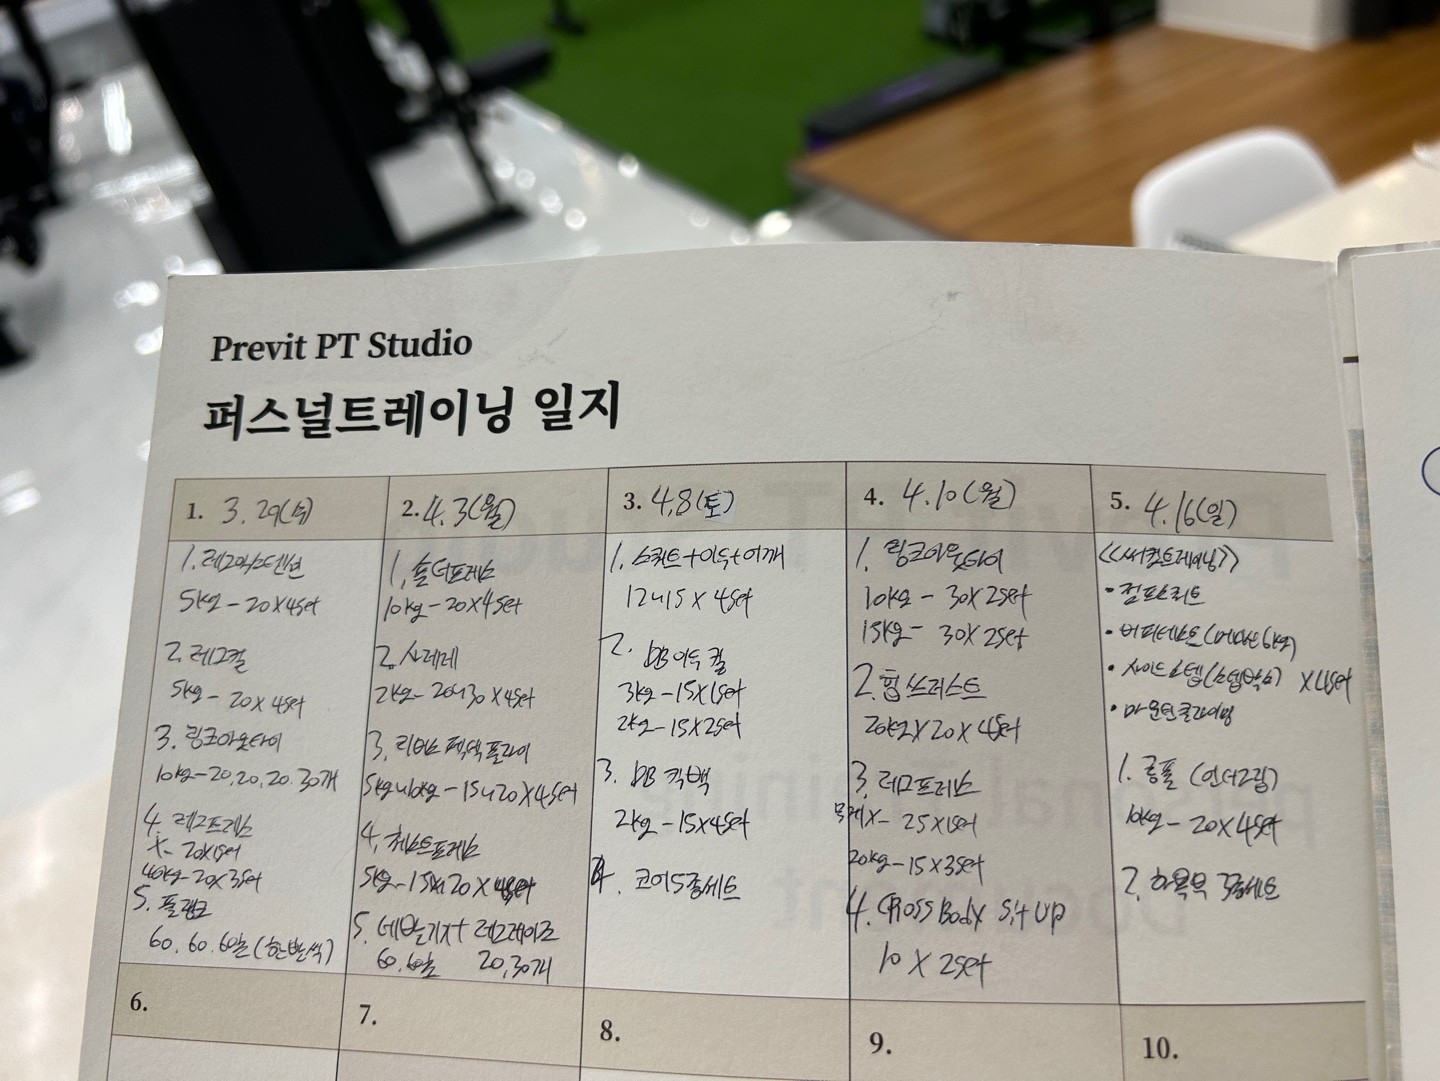 Previt PT Studio
퍼스널트레이닝 일지
1. 3.29(수)
1. 레그익스텐션
5kg - 20x4set
2. 레그컬
5kg - 20x4set
3. 링크아웃타이
10kg - 20, 20, 20, 30개
4. 레그프레스
x - 20x1set
40kg - 20x3set
5. 플랭크
60. 60. 60초 (한발씩)
2. 4.3(월)
1. 숄더프레스
10kg - 20x4set
2. 사레레
2kg - 20~30 x4set
3. 리버스 펙덱 플라이
5kg~10kg - 15~20x4set
4. 체스트프레스
5kg - 15~20 x 4set
5. 네발기기+ 레그레이즈
60, 60초 20, 30개
3. 4.8(토)
1. 스쿼트+이두+어깨
12~15 x 4set
2. DB 이두 컬
3kg - 15x1set
2kg - 15x2set
3. DB 킥백
2kg - 15x4set
4. 코어 5종세트
4. 4.10(월)
1. 링크아웃타이
10kg - 30x2set
15kg - 30x2set
2. 힙 쓰러스트
20kg x 20 x 4set
3. 레그프레스
무게x - 25x1set
20kg - 15x3set
4. CROSS BODY Sit UP
10 x 2set
5. 4.16(일)
<<써킷트레이닝>>
• 점프스쿼트
• 버피테스트 (메디신 6kg)
• 사이드스텝(스텝박스) x4set
• 마운틴클라이밍
1. 롱풀 (언더그립)
10kg - 20x4set
2. 하복부 3종세트
6.
7.
8.
9.
10.